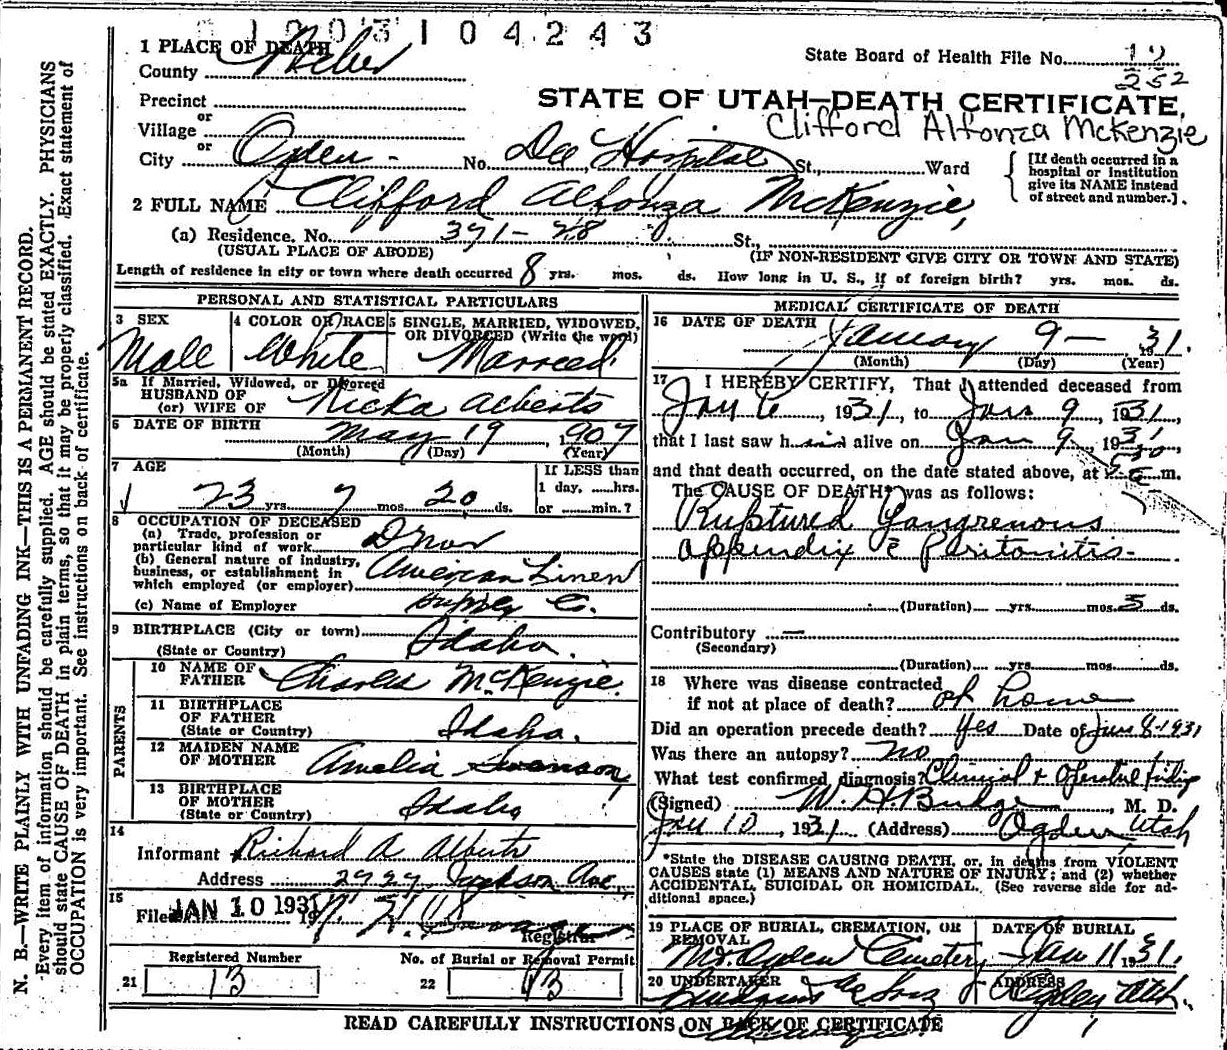 1003104243
1 PLACE OF DEATH
State Board of Health File No. 12
County Weber
252
Precinct
STATE OF UTAH—DEATH CERTIFICATE.
or
Village
Clifford Alfonza McKenzie
or
City Ogden - No. Dee Hospital St., Ward
{ [If death occurred in a
hospital or institution
give its NAME instead
of street and number.] .
2 FULL NAME Clifford Alfonza McKenzie,
(a) Residence. No. 391-28 St.,
(USUAL PLACE OF ABODE) (IF NON-RESIDENT GIVE CITY OR TOWN AND STATE)
Length of residence in city or town where death occurred 8 yrs. mos. ds. How long in U. S., if of foreign birth? yrs. mos. ds.
PERSONAL AND STATISTICAL PARTICULARS
3 SEX
Male
4 COLOR OR RACE
White
5 SINGLE, MARRIED, WIDOWED,
OR DIVORCED (Write the word)
Married
5a If Married, Widowed, or Divorced
HUSBAND OF
(or) WIFE OF Ricka Alberts
6 DATE OF BIRTH May 19, 1907
(Month) (Day) (Year)
7 AGE
23 yrs 7 mos. 20 ds.
If LESS than
1 day, ......hrs.
or ......min.?
8 OCCUPATION OF DECEASED
(a) Trade, profession or
particular kind of work
(b) General nature of industry,
business, or establishment in
which employed (or employer) American Linen
(c) Name of Employer Supply C.
9 BIRTHPLACE (City or town)
(State or Country) Idaho.
PARENTS
10 NAME OF
FATHER Charles McKenzie.
11 BIRTHPLACE
OF FATHER
(State or Country) Idaho.
12 MAIDEN NAME
OF MOTHER Amelia Swanson
13 BIRTHPLACE
OF MOTHER
(State or Country) Idaho
14
Informant Richard A Alberts
Address 2927 Jackson Ave
15
Filed JAN 10 1931
Registrar
Registered Number
21 13
No. of Burial or Removal Permit
22 43
MEDICAL CERTIFICATE OF DEATH
16 DATE OF DEATH January 9 - 1931.
(Month) (Day) (Year)
17 I HEREBY CERTIFY, That I attended deceased from
Jan 6, 1931, to Jan 9, 1931,
that I last saw him alive on Jan 9, 1931,
and that death occurred, on the date stated above, at m.
The CAUSE OF DEATH* was as follows:
Ruptured Gangrenous
appendix c̄ Peritonitis-
(Duration) yrs. mos. 3 ds.
Contributory —
(Secondary)
(Duration) yrs. mos. ds.
18 Where was disease contracted
if not at place of death? at home
Did an operation precede death? yes Date of Jan 8-1931
Was there an autopsy? no
What test confirmed diagnosis? Clinical + operative findings
(Signed) W. H. Budge, M. D.
Jan 10, 1931 (Address) Ogden, Utah
*State the DISEASE CAUSING DEATH, or, in deaths from VIOLENT
CAUSES state (1) MEANS AND NATURE OF INJURY; and (2) whether
ACCIDENTAL, SUICIDAL OR HOMICIDAL. (See reverse side for ad-
ditional space.)
19 PLACE OF BURIAL, CREMATION, OR
REMOVAL
Mt. Ogden Cemetery
DATE OF BURIAL
Jan 11 1931.
20 UNDERTAKER
& Sons
ADDRESS
Ogden, Utah.
READ CAREFULLY INSTRUCTIONS ON BACK OF CERTIFICATE
N. B.—WRITE PLAINLY WITH UNFADING INK—THIS IS A PERMANENT RECORD.
Every item of information should be carefully supplied. AGE should be stated EXACTLY. PHYSICIANS
should state CAUSE OF DEATH in plain terms, so that it may be properly classified. Exact statement of
OCCUPATION is very important. See instructions on back of certificate.